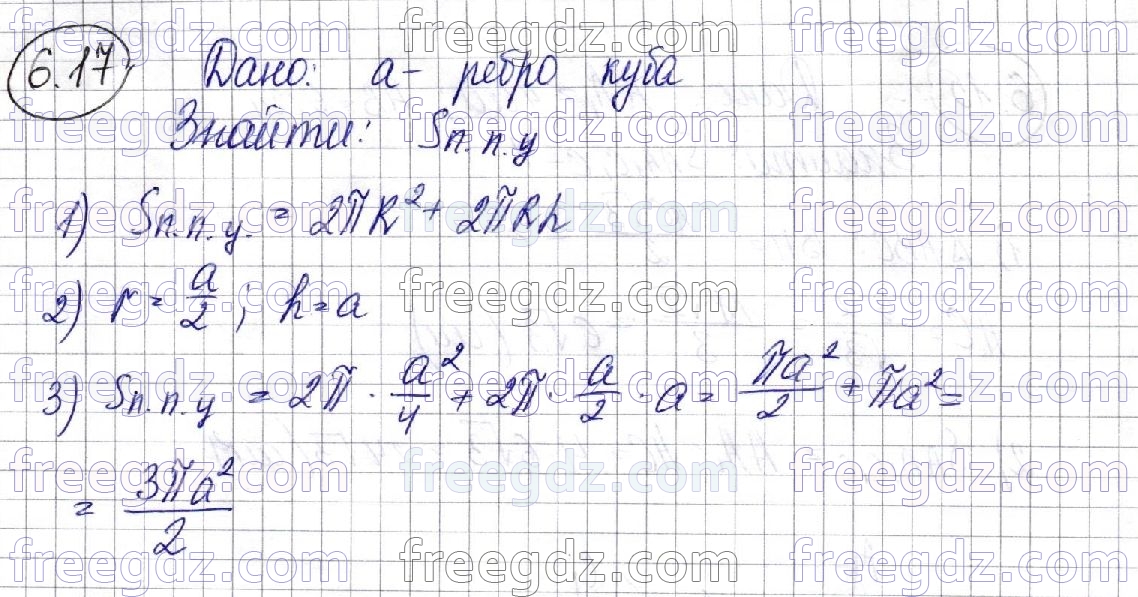 6.17
Дано: a - ребро куба
Знайти: Sп.п.ц
1) Sп.п.ц. = 2πR² + 2πRh
2) r = a/2 ; h = a
3) Sп.п.ц = 2π · a²/4 + 2π · a/2 · a = πa²/2 + πa² =
= 3πa²/2
freegdz.com